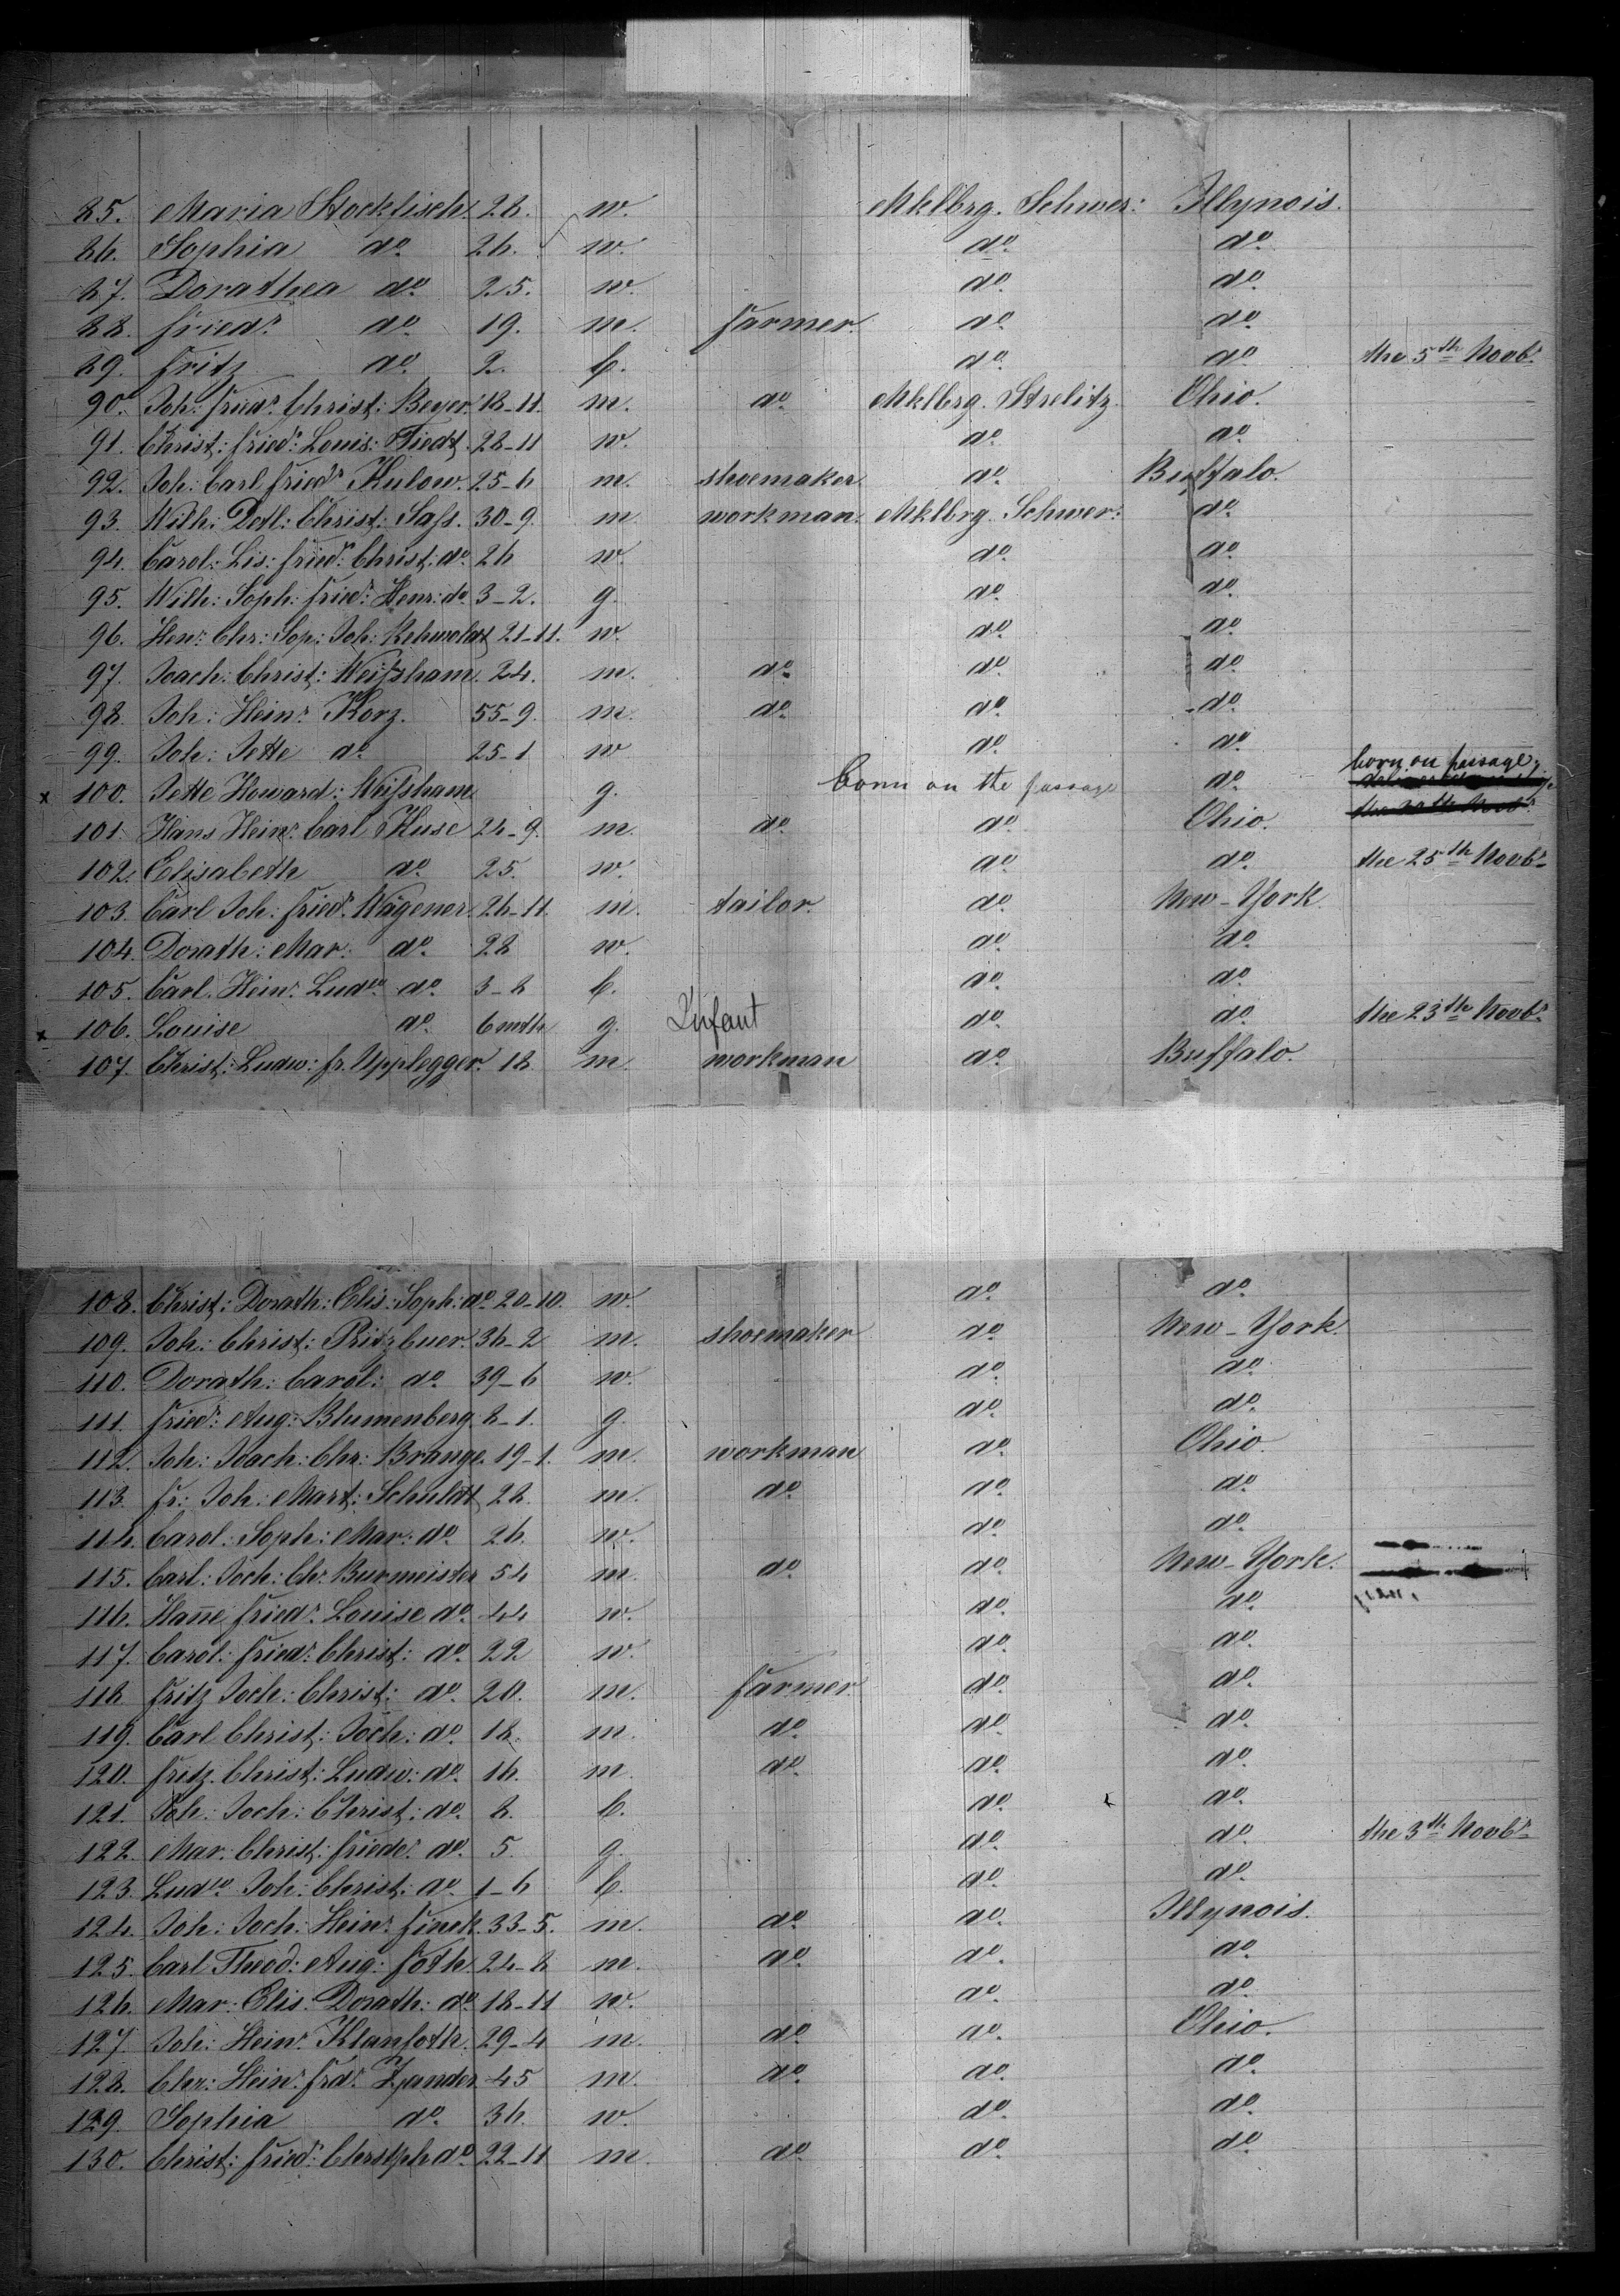 85. Maria Stocklisch. 28. w. Mklbrg. Schwer: Illynois.
86. Sophia do. 26. w. do. do.
87. Dorathea do. 25. w. do. do.
88. Friedr. do. 19. m. farmer. do. do.
89. Fritz do. 2. b. do. do. the 5th Novbr.
90. Joh: Friedr. Christ: Beyer. 18-11. m. do. Mklbrg. Strelitz. Ohio.
91. Christ: Fried: Louis: Tiedt. 28-11 w. do. do.
92. Joh: Carl Friedr. Kulow. 25-6 m. shoemaker do. Buffalo.
93. Wilh: Detl: Christ: Sass. 30-9. m. workman. Mklbrg. Schwer: do.
94. Carol: Lis: Friedr. Christ: do. 26 w. do. do.
95. Wilh: Soph: Fried: Henr: do. 3-2. g. do. do.
96. Henr: Chr: Sop: Joh: Rehwoldt 21-11. w. do. do.
97. Joach: Christ: Weissham. 24. m. do. do. do.
98. Joh: Heinr. Korz. 55-9. m. do. do. do.
99. Joh: Jette do. 25-1 w do. do.
born on passage,
x 100. Jette Howard: Weissham g. born on the passage do.
101. Hans Heinr. Carl Kuse 24-9. m. do. do. Ohio.
102. Elisabeth do. 25. w. do. do. the 25th Novbr.
103. Carl Joh: Friedr. Wagener. 26-11. m. tailor. do. New-York.
104. Dorath: Mar: do. 28 w. do. do.
105. Carl. Heinr. Ludw. do. 3-8 b. do. do.
x 106. Louise do. 6 mth g. Infant do. do. the 23th Novbr.
107. Christ: Ludw: fr. Upplegger. 18. m. workman do. Buffalo.
108. Christ: Dorath: Elis: Soph: do. 20-10. w. do. do.
109. Joh: Christ: Pritzbuer. 36-2 m. shoemaker do. New-York.
110. Dorath: Carol: do. 39-6 w. do. do.
111. Fried: Aug: Blumenberg. 8-1. g. do. do.
112. Joh: Joach: Chr: Brange. 19-1. m. workman do. Ohio.
113. Fr: Joh: Mart: Schuldt 28. m. do. do. do.
114. Carol: Soph: Mar: do. 26. w. do. do.
115. Carl: Joch: Chr. Burmeister 54 m. do. do. New-York.
116. Hanne Friedr. Louise do. 44 w. do. do.
117. Carol: Friedr. Christ: do. 22 w. do. do.
118 Fritz Joch: Christ: do. 20. m. farmer do. do.
119. Carl Christ: Joch: do. 18. m. do. do. do.
120. Fritz. Christ: Ludw: do. 16. m. do. do. do.
121. Joh: Joch: Christ: do. 8. b. do. do.
122. Mar. Christ: Frieder. do. 5. g. do. do. the 3th Novbr.
123. Ludw. Joh: Christ: do. 1-6 b. do. do.
124. Joh: Joch: Heinr. Finck. 33-5. m. do. do. Illynois.
125. Carl Theod: Aug: Foth. 24-8 m. do. do. do.
126. Mar: Elis: Dorath: do. 18-11 w. do. do.
127. Joh: Heinr. Klanfoth. 29-4 m. do. do. Ohio.
128. Chr: Heinr. Frdr. Zander. 45 m. do. do. do.
129. Sophia do. 36. w. do. do.
130. Christ: Friedr. Christph do. 22-11 m. do. do. do.